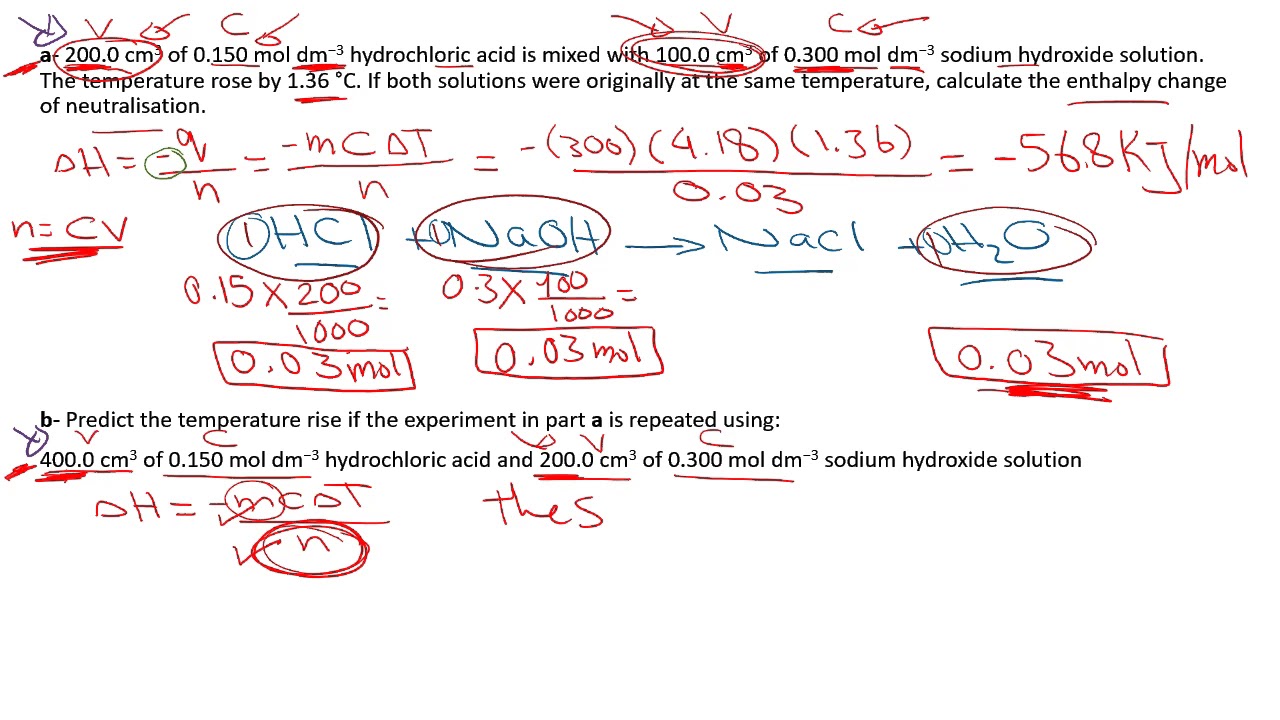 V C V C
a- 200.0 cm³ of 0.150 mol dm⁻³ hydrochloric acid is mixed with 100.0 cm³ of 0.300 mol dm⁻³ sodium hydroxide solution.
The temperature rose by 1.36 °C. If both solutions were originally at the same temperature, calculate the enthalpy change
of neutralisation.
ΔH = -q/n = -mCΔT/n = -(300)(4.18)(1.36)/0.03 = -56.8KJ/mol
n=CV 1HCl + 1NaOH → NaCl + 1H₂O
0.15 × 200/1000 = 0.3 × 100/1000 =
0.03mol 0.03mol 0.03mol
b- Predict the temperature rise if the experiment in part a is repeated using:
V C V C
400.0 cm³ of 0.150 mol dm⁻³ hydrochloric acid and 200.0 cm³ of 0.300 mol dm⁻³ sodium hydroxide solution
ΔH = -mCΔT/n the s